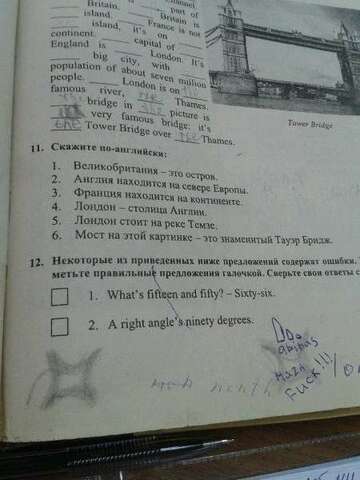 Channel
Britain. ___ part of
___ island. ___ Britain is
___ island, ___ France is not
continent. it's on ___
England is ___ capital of ___
___ big city, with ___ London. It's
population of about seven million
people. ___ London is on
famous river, the Thames.
bridge in the picture is
very famous bridge: it's
the Tower Bridge over the Thames.
Tower Bridge
11. Скажите по-английски:
1. Великобритания – это остров.
2. Англия находится на севере Европы.
3. Франция находится на континенте.
4. Лондон – столица Англии.
5. Лондон стоит на реке Темзе.
6. Мост на этой картинке – это знаменитый Тауэр Бридж.
12. Некоторые из приведенных ниже предложений содержат ошибки.
метьте правильные предложения галочкой. Сверьте свои ответы с
1. What's fifteen and fifty? – Sixty-six.
2. A right angle's ninety degrees.
Fuck!!!